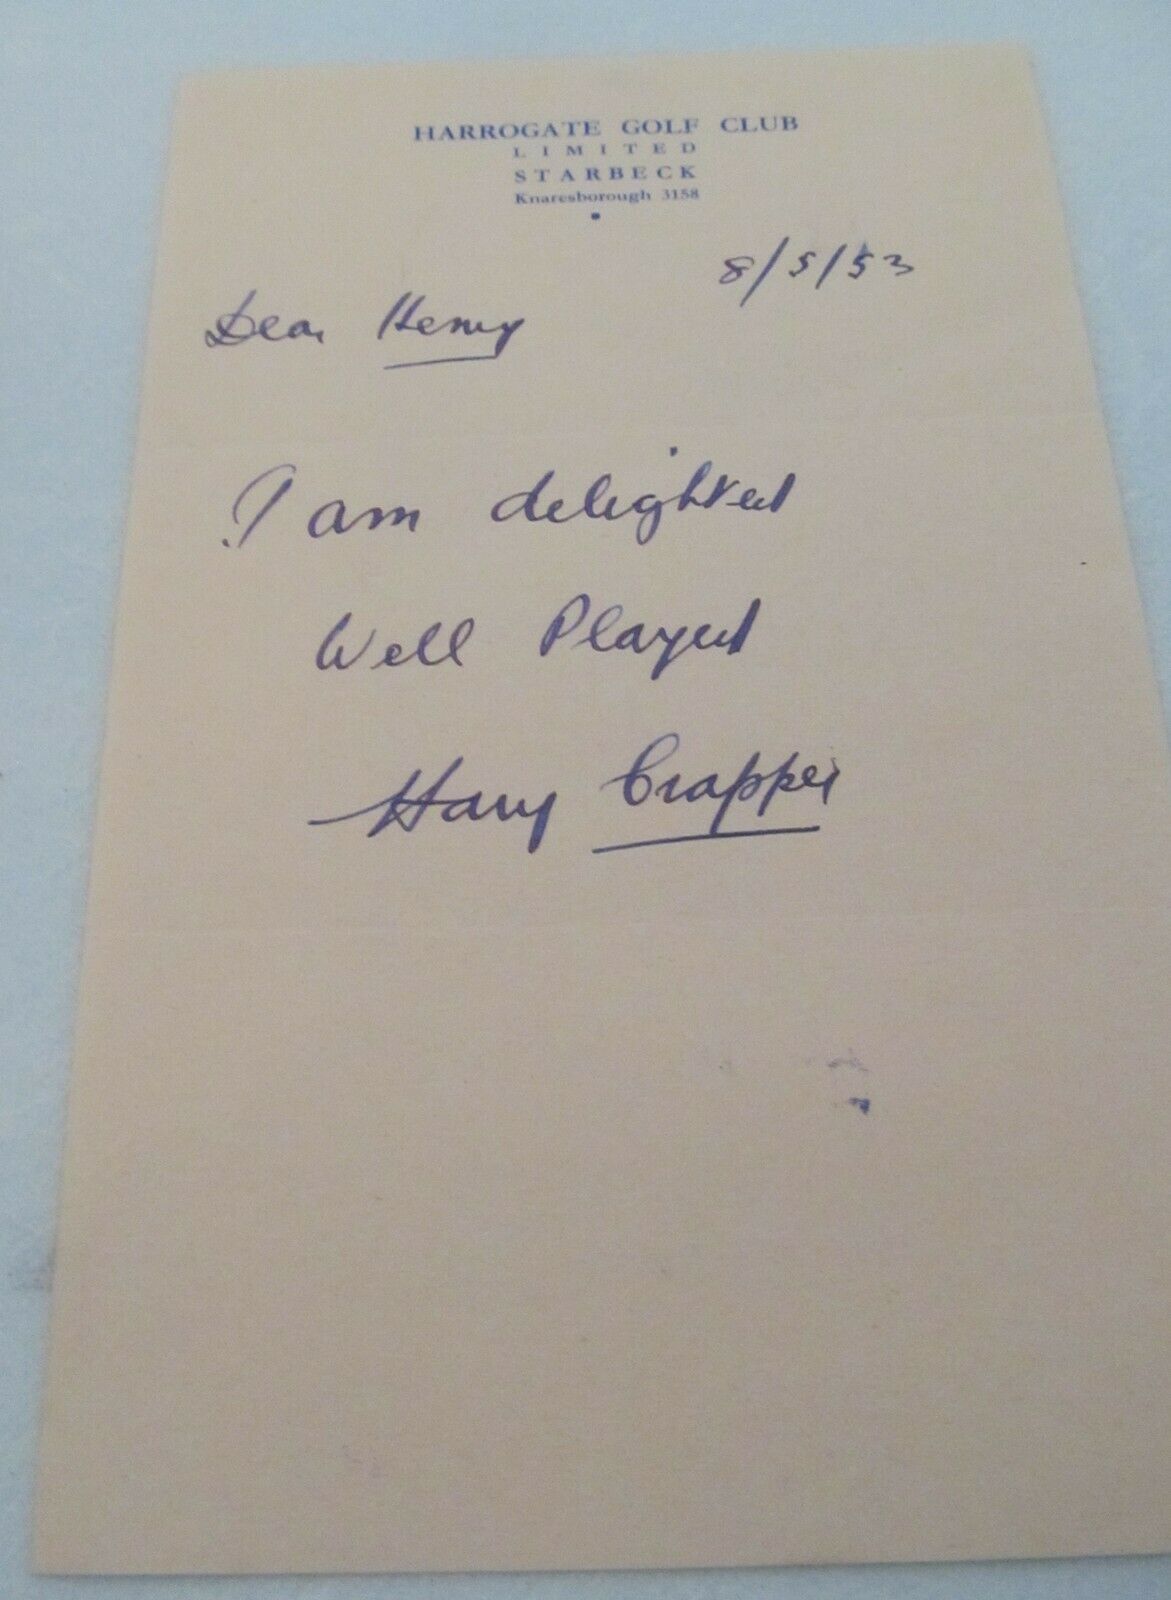 HARROGATE GOLF CLUB
LIMITED
STARBECK
Knaresborough 3158
8/5/53
Dear Henry
I am delighted
Well Played
Harry Crapper